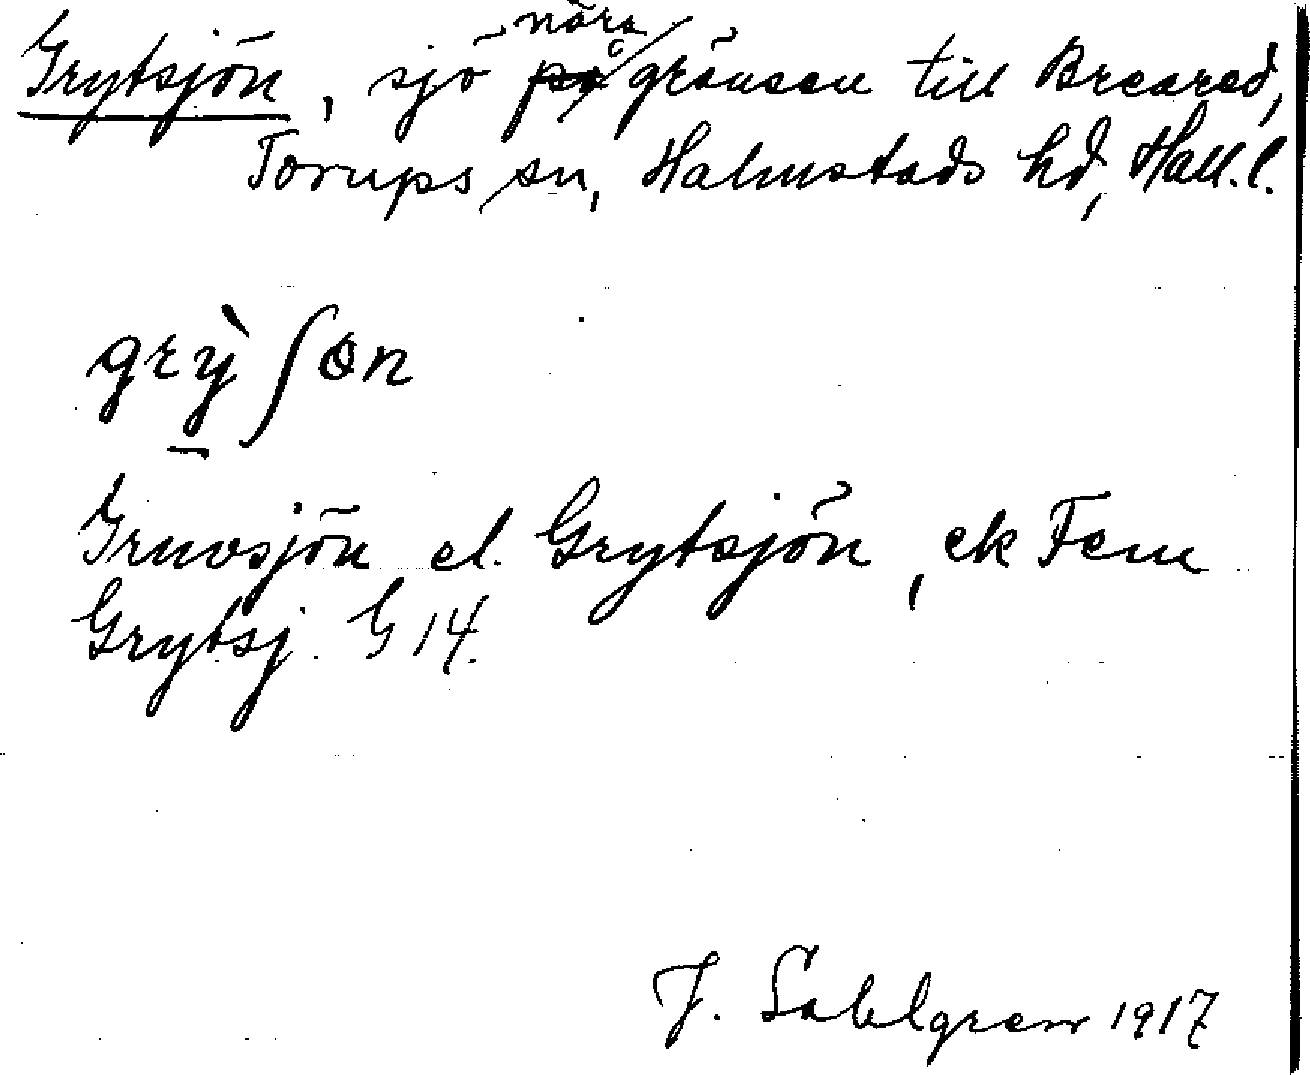 Grytsjön, sjö nära gränsen till Breared,
Torups sn, Halmstads hd, Hall. l.
grỳʃɵn
Gruvsjön el. Grytsjön, ek Fem
Grytsj. G 14.
J. Sahlgren 1917